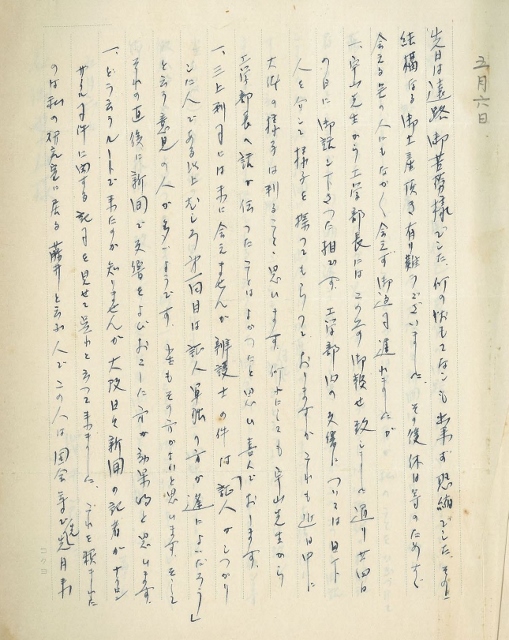 三月六日
先日は遠路御苦労様でした。何の おもてなしも出来ず恐縮でした。その上
結構なる御土産頂き有り難うございました。その後休日等のためもあって
会える筈の人にもなかなか会えず御返事遅れましたが
一、平山先生から工学部長にはこの前御報せ致しました通り廿四日
の日に御話し下さった相です。工学部内の反響については目下
人を介して様子を探ってもらっておりますがこれも近日中に
大体の様子は判ること 思います。何れにしても平山先生から
工学部長へ話が伝ったことはよかったと思い喜んでおります。
一、三上判事には未だ会えませんが弁護士の件は「証人がしっかり
した人である以上むしろ第一回目は証人単独の方が遥によいだろう」
と云う意見の人が多いようです。 もその方がよいと思います。そして
それの直後に新聞で反響をよびおこした方が効果的と思います。
一、どう云うルートで来たのか知りませんが大阪日日新聞の記者が
事件に関する記事を見せて呉れと云って来ました。これを頼まれた
のは私の研究室に居る藤井と云ふ人でこの人は国会